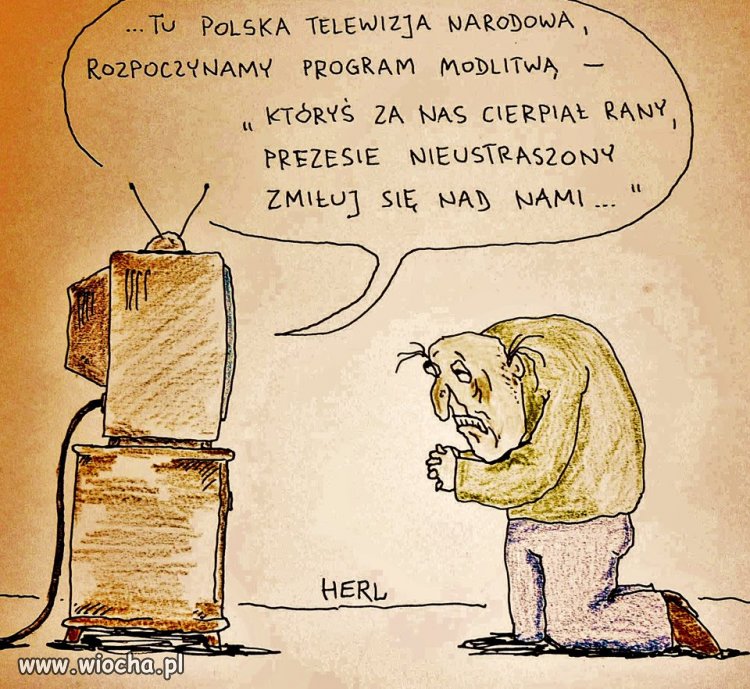 ...TU POLSKA TELEWIZJA NARODOWA,
ROZPOCZYNAMY PROGRAM MODLITWĄ –
„KTÓRYŚ ZA NAS CIERPIAŁ RANY,
PREZESIE NIEUSTRASZONY
ZMIŁUJ SIĘ NAD NAMI..."
HERL
www.wiocha.pl